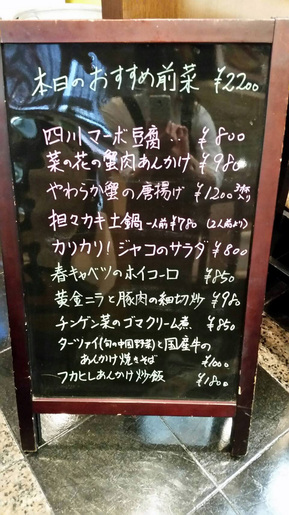 本日のおすすめ前菜 ¥2200
四川マーボ豆腐‥ ¥800
菜の花の蟹肉あんかけ ¥980
やわらか蟹の唐揚げ ¥1200 3杯入り
担々カキ土鍋 一人前¥780 (2人前より)
カリカリ!ジャコのサラダ ¥800
春キャベツのホイコーロ ¥850
黄金ニラと豚肉の細切炒 ¥980
チンゲン菜のゴマクリーム煮 ¥850
ターツァイ(旬の中国野菜)と国産牛の
あんかけ焼きそば ¥1000
フカヒレあんかけ炒飯 ¥1800